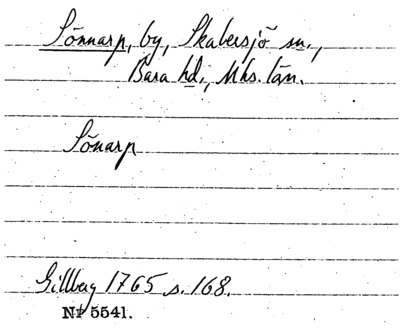 Sönnarp, by, Skabersjö sn.,
Bara hd., Mhs. län.
Sönarp
Gillberg 1765 s. 168.
Nr 5541.